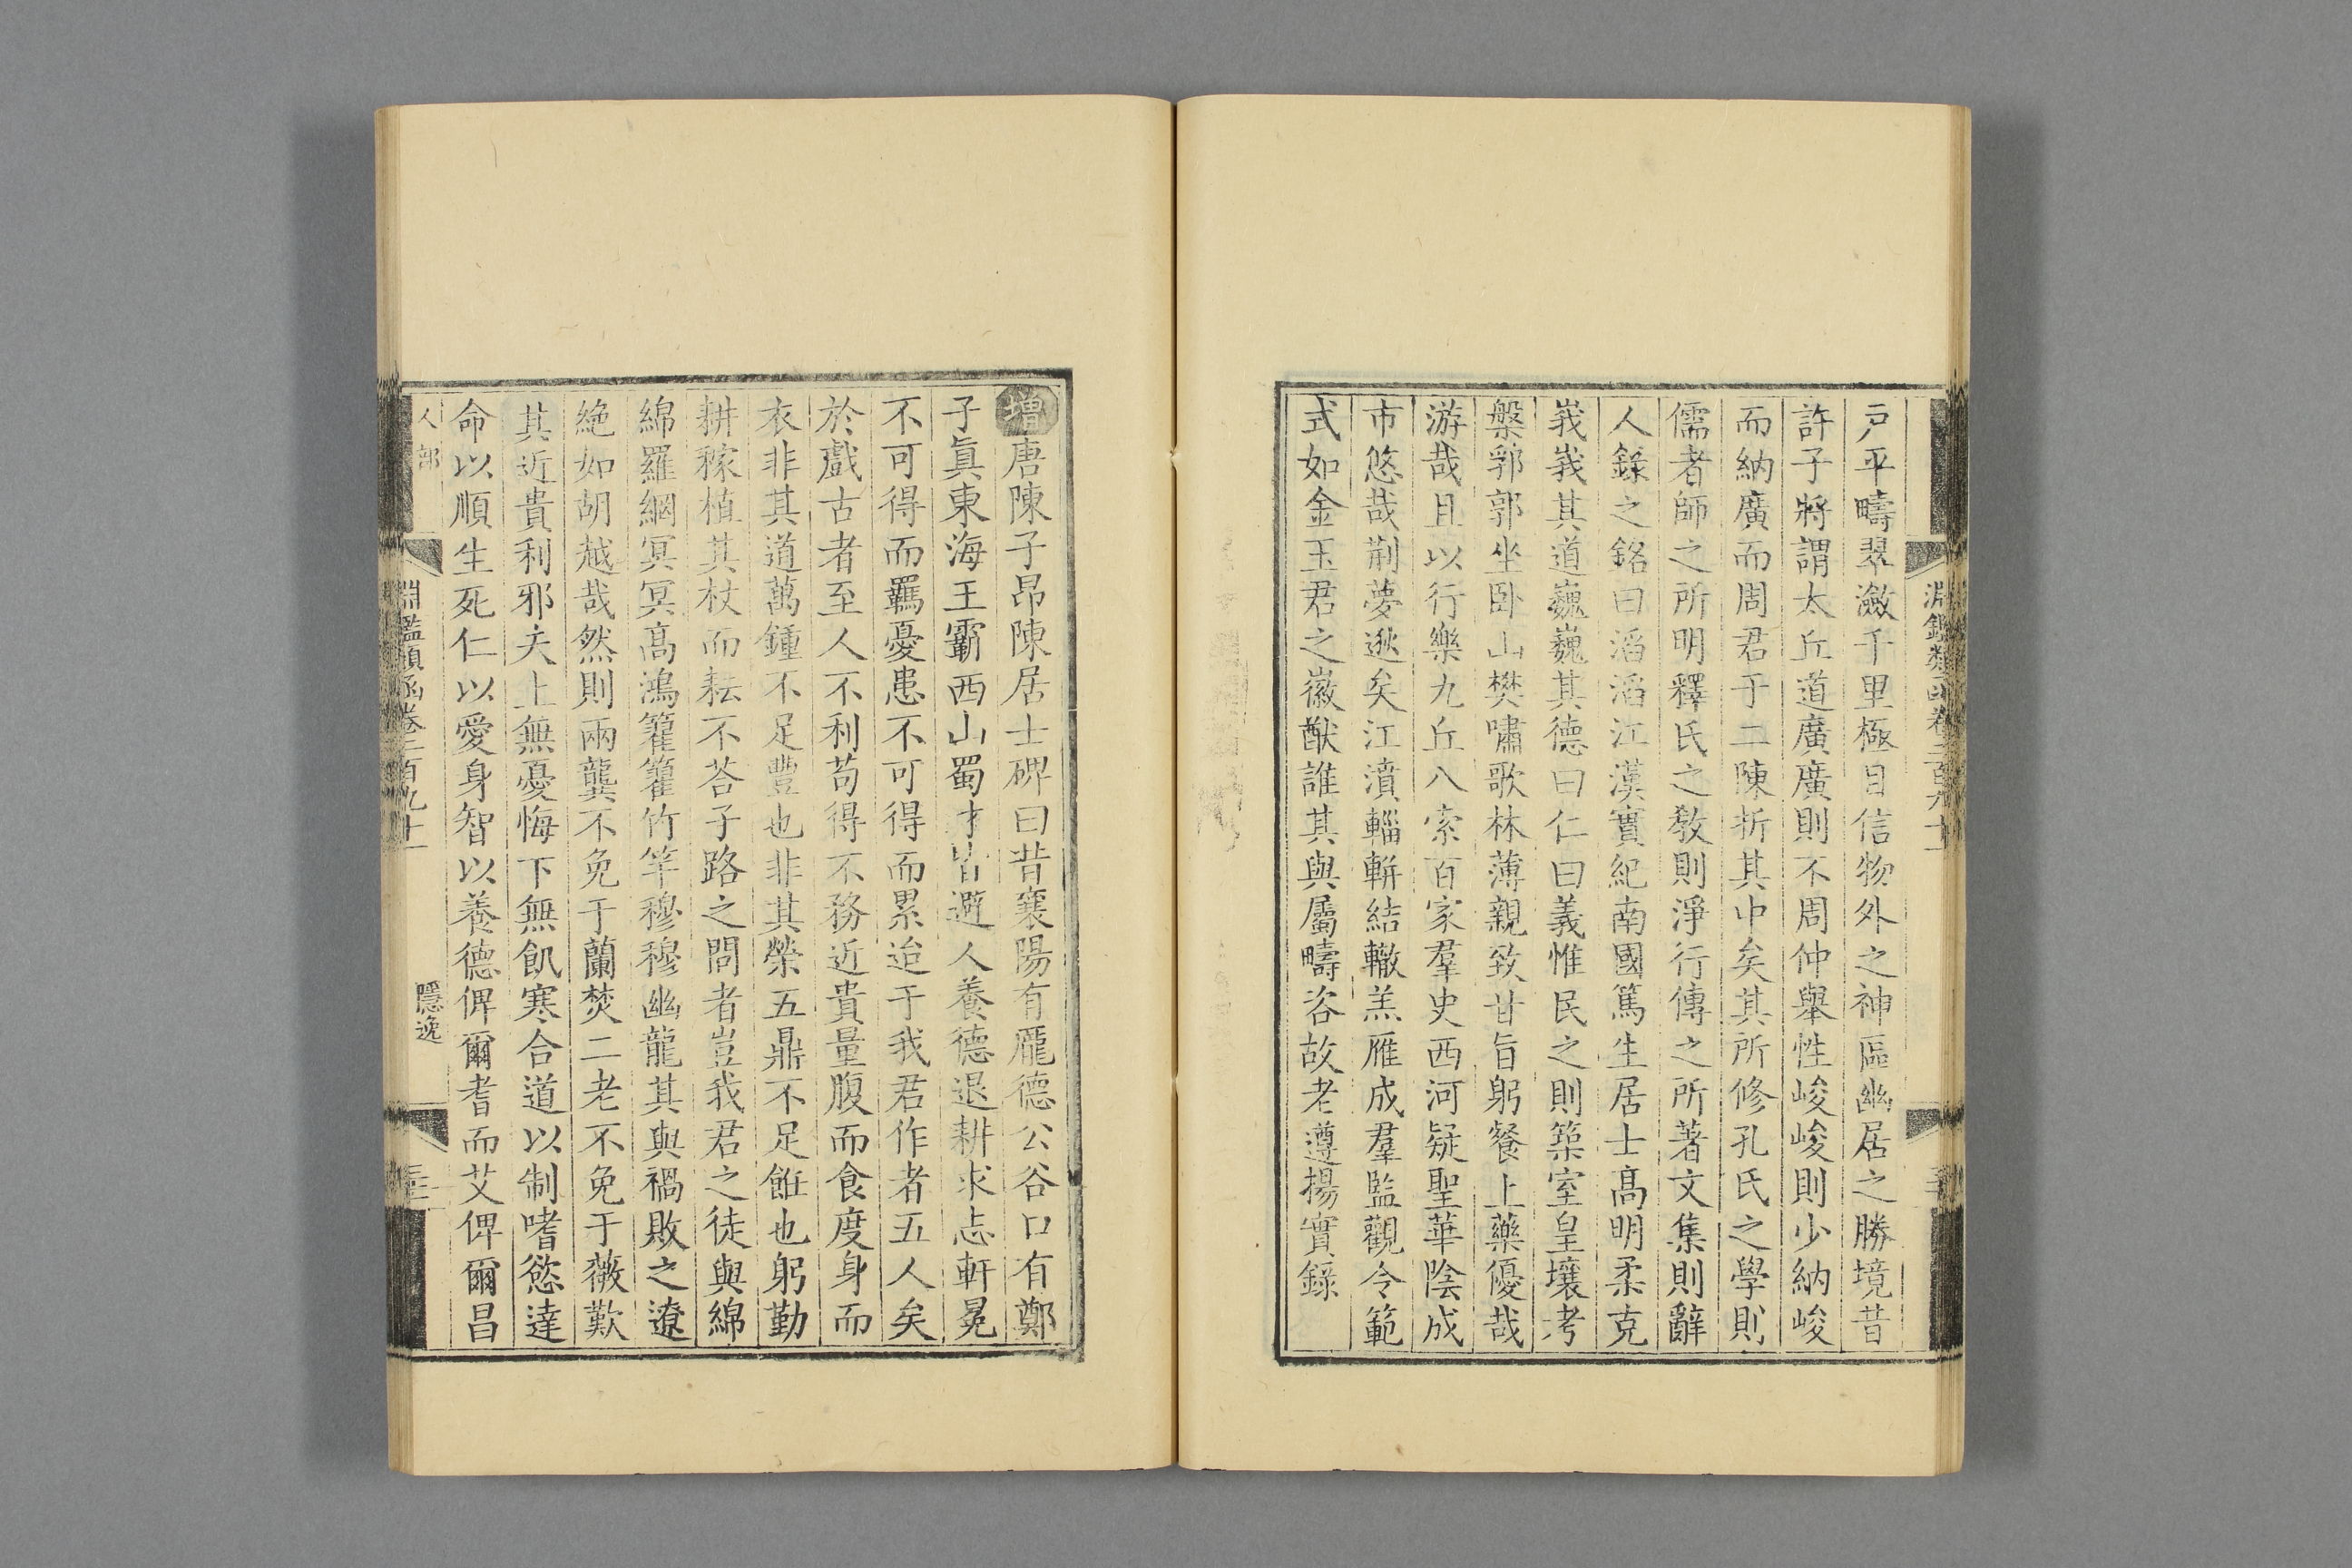 淵鑑類函卷二百九十一
戶平疇翠瀲千里極目信物外之神區幽居之勝境昔
許子將謂太丘道廣廣則不周仲舉性峻峻則少納峻
而納廣而周君于二陳折其中矣其所修孔氏之學則
儒者師之所明釋氏之敎則淨行傳之所著文集則辭
人錄之銘曰滔滔江漢實紀南國篤生居士高明柔克
峩峩其道巍巍其德曰仁曰義惟民之則築室皇壤考
槃郛郭坐卧山樊嘯歌林薄親致甘旨躬餐上藥優哉
游哉且以行樂九丘八索百家羣史西河疑聖華陰成
市悠哉荆夢逖矣江濆輜軿結轍羔雁成羣監觀令範
式如金玉君之徽猷誰其與屬疇咨故老遵揚實錄
增唐陳子昂陳居士碑曰昔襄陽有龐德公谷口有鄭
子眞東海王霸西山蜀才皆避人養德退耕求志軒冕
不可得而羈憂患不可得而累迨于我君作者五人矣
於戲古者至人不利苟得不務近貴量腹而食度身而
衣非其道萬鍾不足豐也非其榮五鼎不足餁也躬勤
耕稼植其杖而耘不荅子路之問者豈我君之徒與綿
綿羅網冥冥高鴻籊籊竹竿穆穆幽龍其與禍敗之遼
絶如胡越哉然則兩龔不免于蘭焚二老不免于薇歎
其近貴利邪夫上無憂悔下無飢寒合道以制嗜慾達
命以順生死仁以愛身智以養德俾爾耆而艾俾爾昌
人部
淵鑑類函卷二百九十一
隱逸